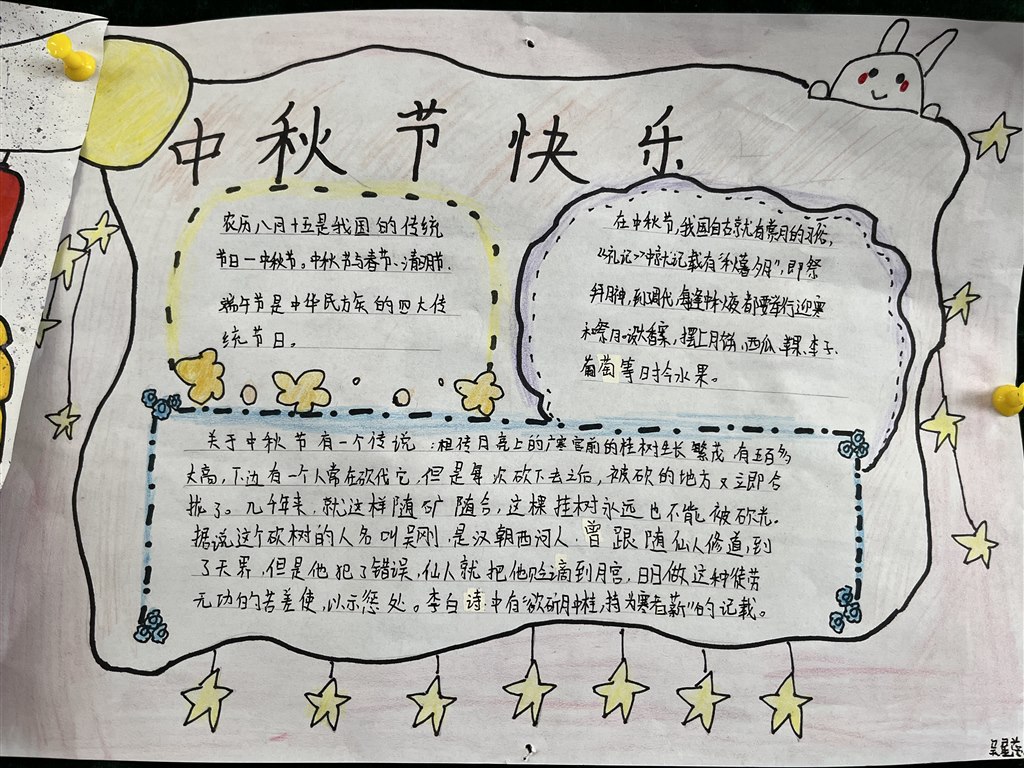 中秋节快乐
农历八月十五是我国的传统
节日一中秋节。中秋节与春节、清明节、
端午节是中华民族的四大传
统节日。
在中秋节,我国自古就有赏月的习俗,
《礼记》中就记载有“秋暮夕月”,即祭
拜月神,到周代,每逢中秋夜都要举行迎寒
和祭月。设大香案,摆上月饼、西瓜、苹果、李子、
葡萄等时令水果。
关于中秋节有一个传说:相传月亮上的广寒宫前的桂树生长繁茂,有五百多
丈高,下边有一个人常在砍伐它,但是每次砍下去之后,被砍的地方又立即合
拢了。几千年来,就这样随砍随合,这棵桂树永远也不能被砍光。
据说这个砍树的人名叫吴刚,是汉朝西河人,曾跟随仙人修道,到
了天界,但是他犯了错误,仙人就把他贬谪到月宫,日日做这种徒劳
无功的苦差使,以示惩处。李白诗中有“欲斫月中桂,持为寒者薪”的记载。